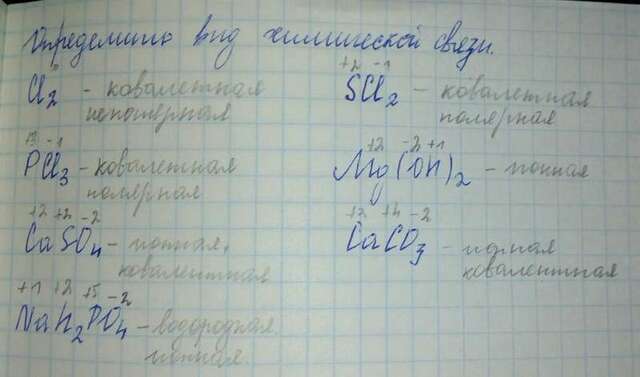 Определить вид химической связи.
Cl₂ - ковалетная
неполярная
+2 -1
SCl₂ - ковалетная
полярная
+3 -1
PCl₃ - ковалетная
полярная
+2 -2 +1
Mg(OH)₂ - ионная
+2 +4 -2
CaSO₄ - ионная,
ковалентная
+2 +4 -2
CaCO₃ - ионная
ковалентная
+1 +2 +5 -2
NaH₂PO₄ - водородная
ионная